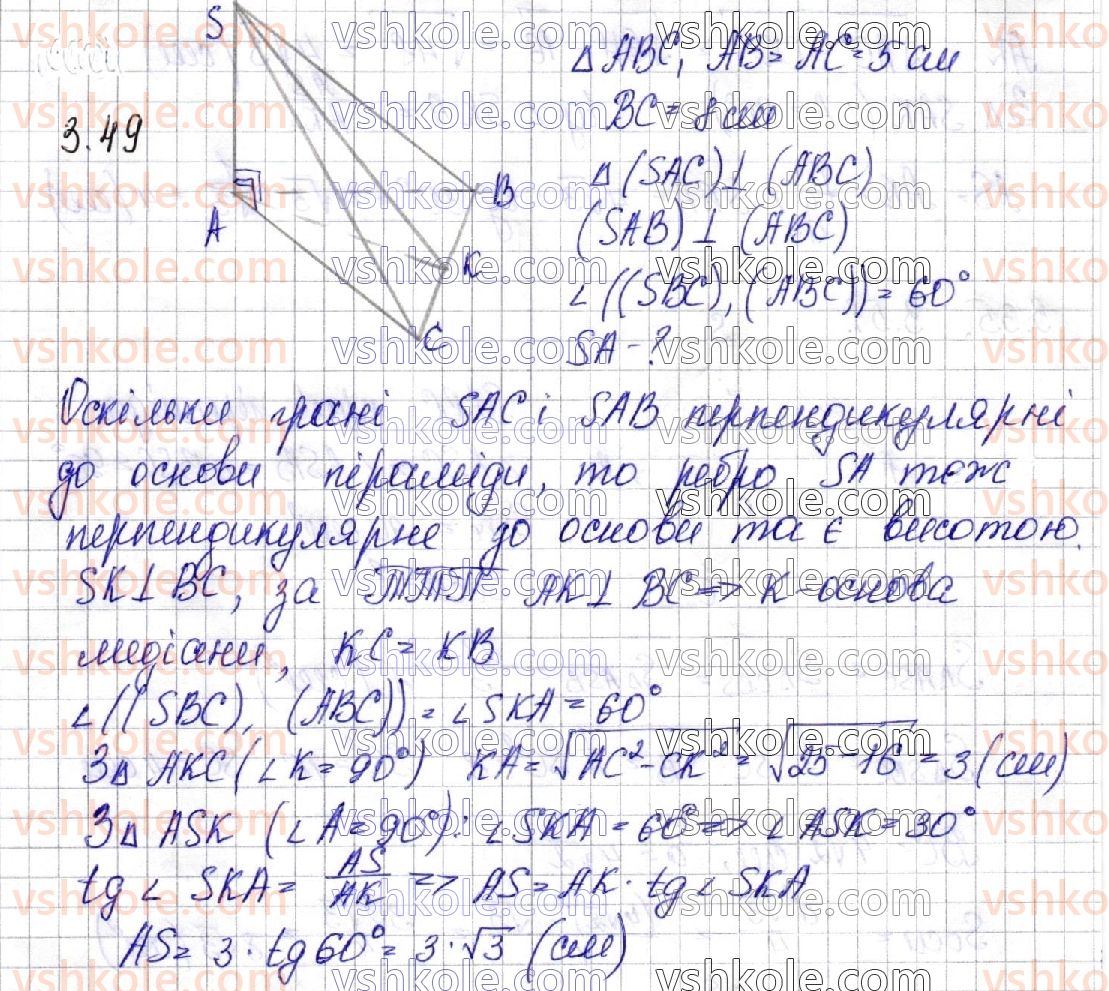 S
△ ABC, AB = AC = 5 см
BC = 8 см
3.49
△ (SAC) ⊥ (ABC)
B
A
(SAB) ⊥ (ABC)
K
∠ ((SBC), (ABC)) = 60°
C
SA - ?
Оскільки грані SAC і SAB перпендикулярні
до основи піраміди, то ребро SA теж
перпендикулярне до основи та є висотою.
SK ⊥ BC, за ТТП AK ⊥ BC => K - основа
медіани, KC = KB
∠ ((SBC), (ABC)) = ∠ SKA = 60°
З △ AKC (∠ K = 90°) KA = √AC² - CK² = √25 - 16 = 3 (см)
З △ ASK (∠ A = 90°): ∠ SKA = 60° => ∠ ASK = 30°
tg ∠ SKA = AS/AK => AS = AK · tg ∠ SKA
AS = 3 · tg 60° = 3 · √3 (см)
vshkole.com